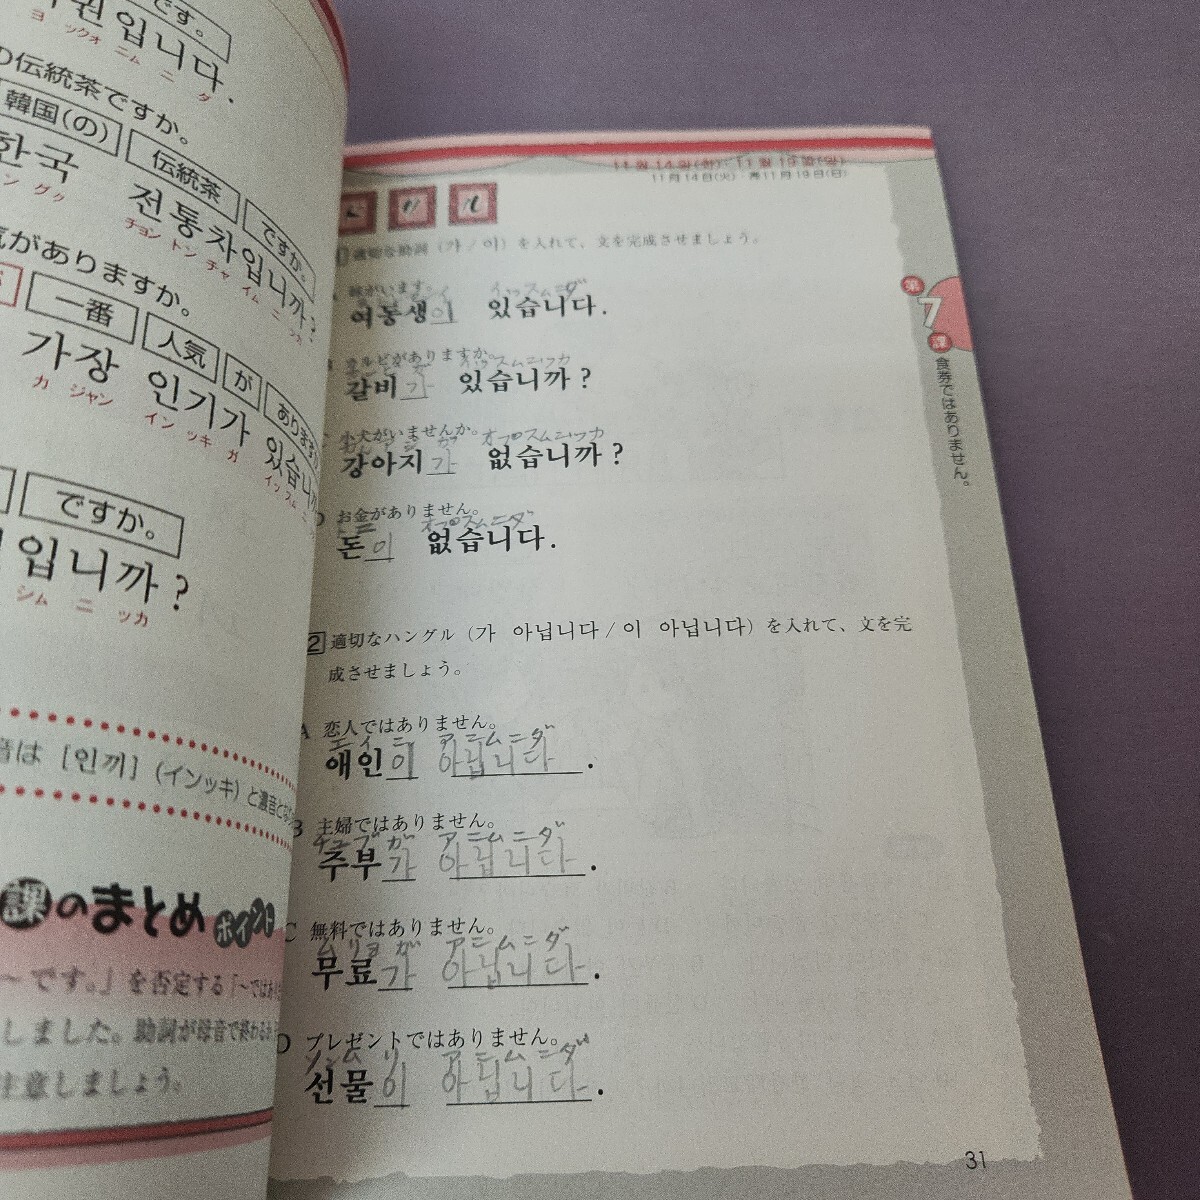 です。
입니다.
ヨ ックォ ニム ニ ダ
の伝統茶ですか。
韓国(の) 伝統茶 ですか。
한국 전통차입니까?
チョン トン チャ イム ニ ッカ
気がありますか。
一番 人気 が あります
가장 인기가 있습니까
カ ジャン イン ッキ ガ イッ スム ニ
ですか。
입니까?
シム ニ ッカ
音は [인끼] (インッキ) と濃音とな
課のまとめ ポイント
〜です。」を否定する「〜ではあり
しました。助詞が母音で終わる
注意しましょう。
11월 14일(화)・11월 19일(일)
11月14日(火)・再11月19日(日)
ドリル
1 適切な助詞 (가/이) を入れて、文を完成させましょう。
A 妹がいます。
イッスムニダ
여동생이 있습니다.
B カルビがありますか。
イッスムニッカ
갈비가 있습니까?
C 小犬がいませんか。
オプスムニッカ
강아지가 없습니까?
D お金がありません。
オプスムニダ
돈이 없습니다.
2 適切なハングル (가 아닙니다/이 아닙니다) を入れて、文を完
成させましょう。
A 恋人ではありません。
エイニ アニムニダ
애인이 아닙니다.
B 主婦ではありません。
チュブガ アニムニダ
주부가 아닙니다.
C 無料ではありません。
ムリョガ アニムニダ
무료가 아닙니다.
D プレゼントではありません。
ソンムリ アニムニダ
선물이 아닙니다.
第7課 食券ではありません。
31